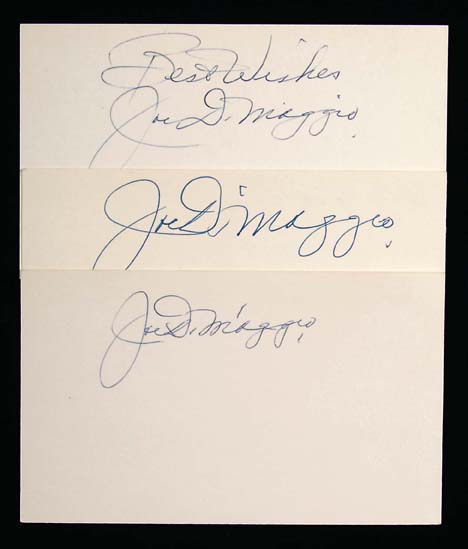 Best Wishes
Joe DiMaggio
Joe DiMaggio
Joe DiMaggio